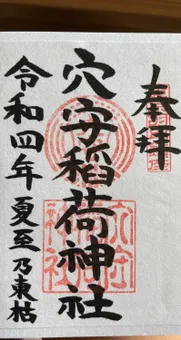 奉拝
穴守稲荷神社
令和四年 夏至 乃東枯